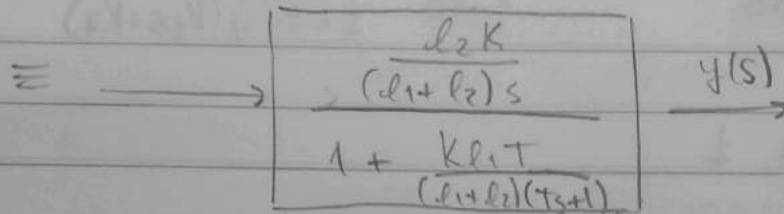 ≡ → \frac{\frac{l_2 K}{(l_1 + l_2) s}}{1 + \frac{K l_1 T}{(l_1 + l_2)(Ts+1)}} y(s) →